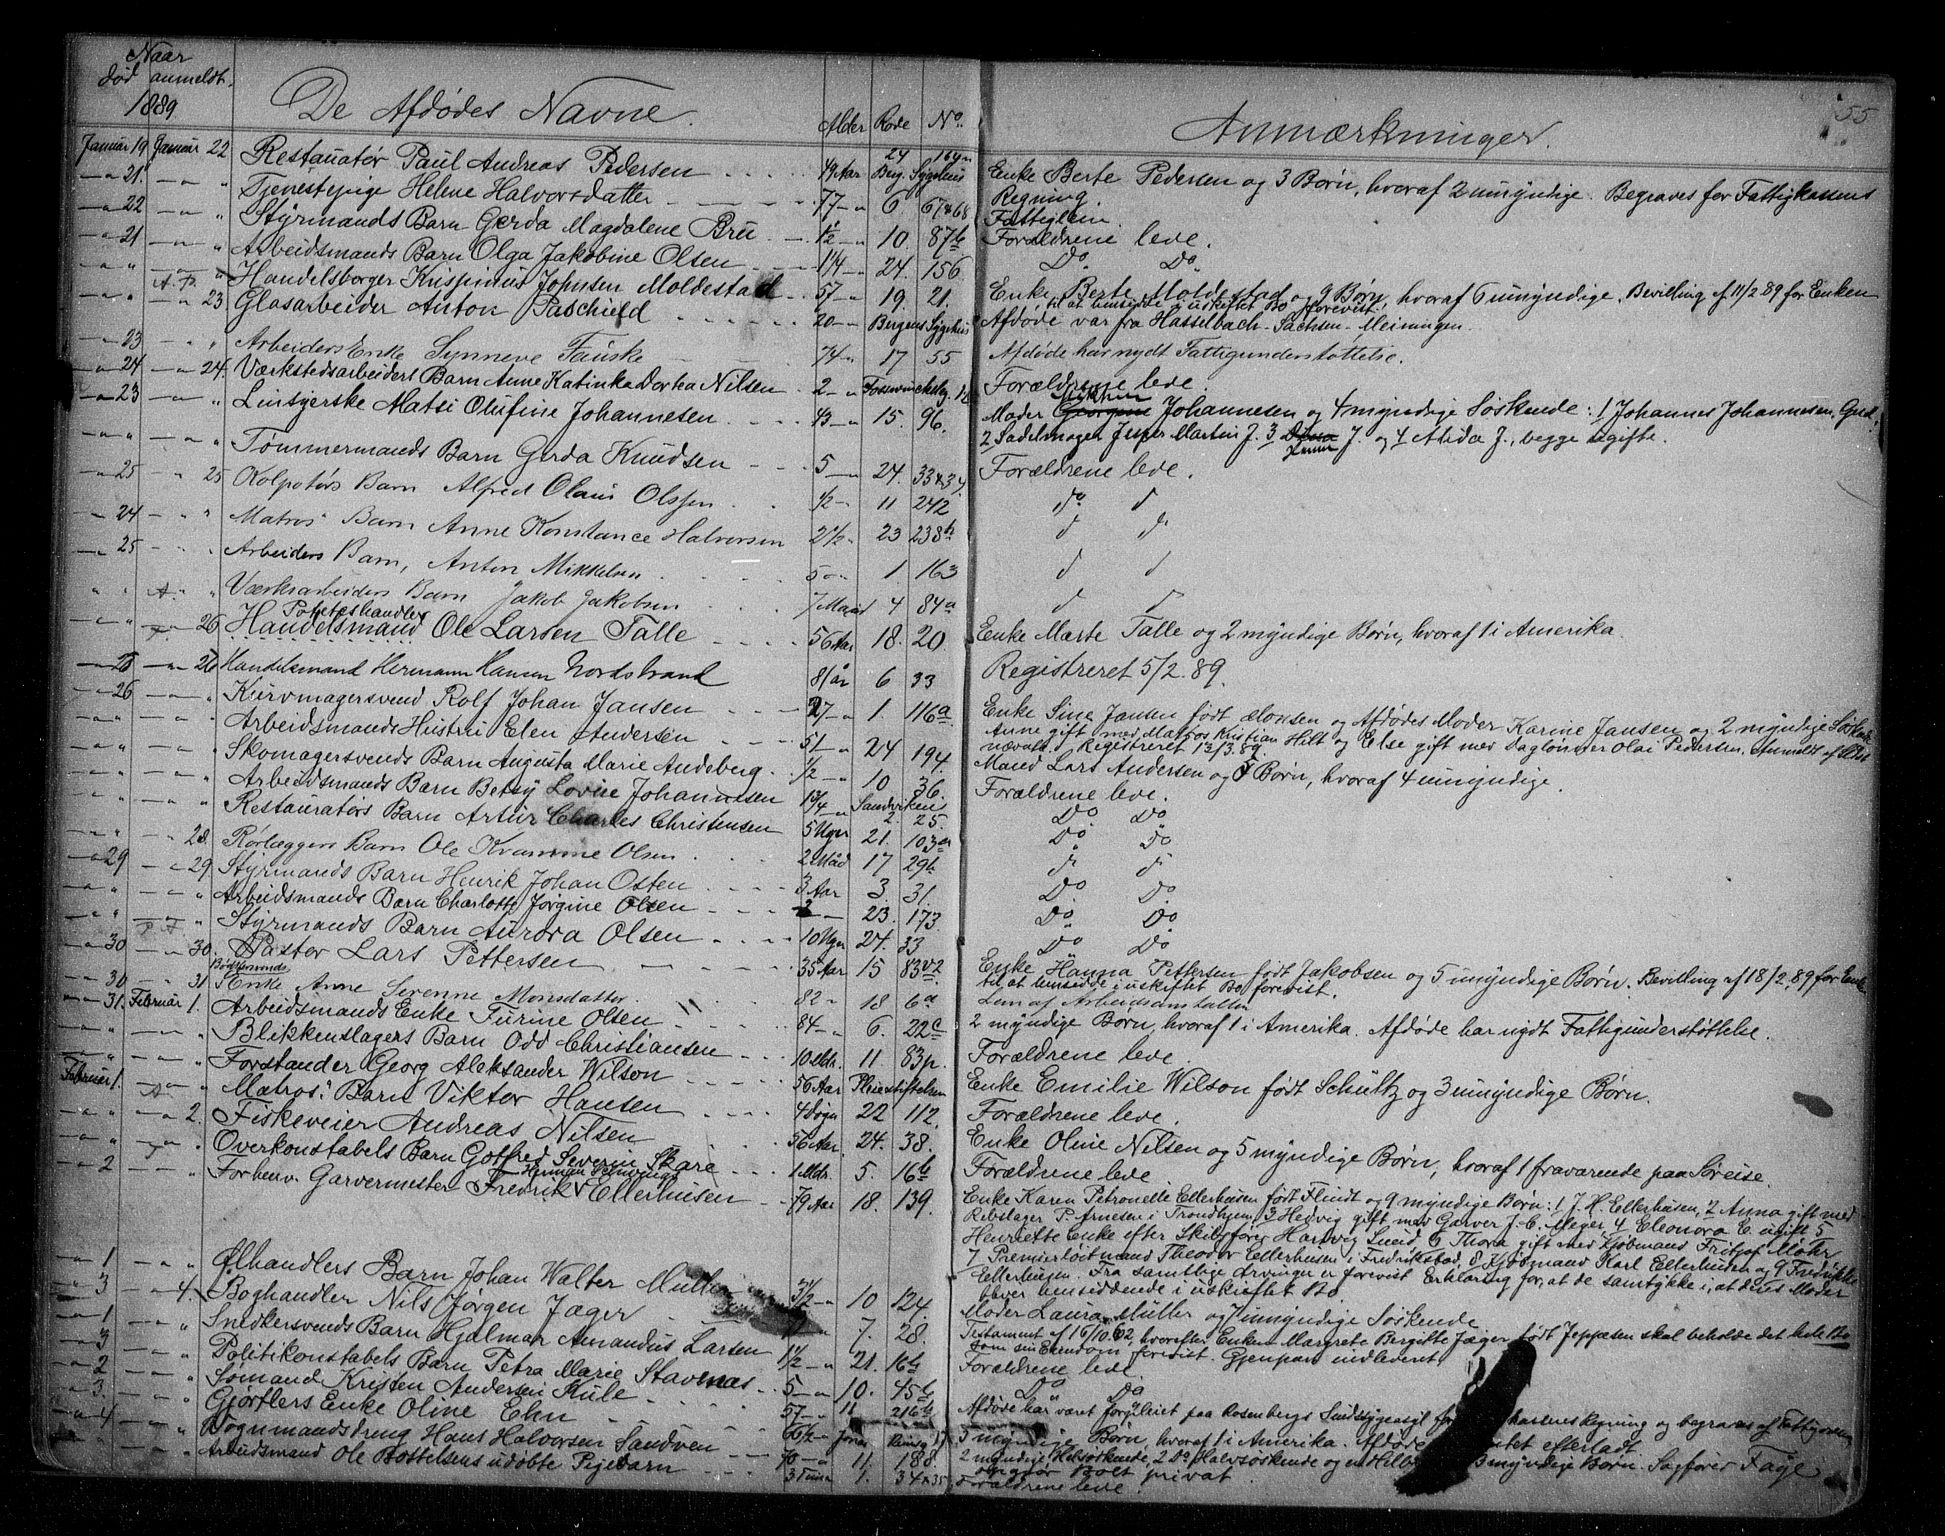 Naar
død anmeldt.
1889
De Afdødes Navne.
Alder Rode No.
Anmærkninger.
55
Januar 19 Januar 22 Restauratør Paul Andreas Pedersen 49 Aar 24 169a Enke Berte Pedersen og 3 Børn, hvoraf 2 umyndige. Begraves for Fattigkassens
Regning.
— 21. — " Tjenestepige Helene Halvorsdatter 77 — Berg. Sygehus Fattiglem
— 22 — " Styrmands Barn Gerda Magdalene Bru 1½ — 6. 67 & 68 Forældrene leve.
— 21 — " Arbeidsmands Barn Olga Jakobine Olsen 1¼ — 10. 87b Do Do
— " — " Handelsborger Krispinus Johnsen Moldestad 57 — 24. 156 Enke Berte Moldestad og 9 Børn, hvoraf 6 umyndige. Bevilling af 11/2 89 for Enken
til at hensidde i uskiftet Bo forevist.
" " — 23. Glasarbeider Anton Paschield 20 — 19. 21. Afdøde var fra Hasselbach - Sachsen - Meiningen.
Bergens Sygehus
— 23 — " Arbeiders Enke Synneve Fauske 74 — 17 55 Afdøde har nydt Fattigunderstøttelse.
— 24 — 24. Værkstedsarbeiders Barn Anne Katinka Dortea Nilsen 2 — Forældrene leve.
— 23 — " Linsyerske Matsi Olufine Johannesen 43 — 15. 96. Moder Johannesen og 4 myndige Søskende: 1 Johannes Johannesen,
2 Sadelmager Jesper Martin J. 3 J. og 4 Alida J., begge ugifte.
" " — " Tømmermands Barn Gerda Knudsen 5 — 24. 33 & 34. Forældrene leve.
— 25 " 25 Kolportørs Barn Alfred Olaus Olsen ½ — 11 242 do d
— 24 — " Matros' Barn Anne Konstance Halvorsen 2½ " 23 238b d do
— 25 " " Arbeiders Barn, Anton Mikkelsen 5 — 1. 163 d d
" " " Værksarbeiders Barn Jakob Jakobsen 7 Maand 4 84a d d
Poteteshandler
" " — 26 Handelsmand Ole Larsen Talle 56 Aar 18. 20 Enke Marte Talle og 2 myndige Børn, hvoraf 1 i Amerika.
— 26 Handelsmand Hermann Hansen Nordstrand 81 år 6 33 Registreret 5/2. 89.
— 26 — " Kurvmagersvend Rolf Johan Jansen 27 — 1. 116a Enke Sine Jansen født Monsen og Afdødes Moder Karine Jansen og 2 myndige Søskende
Anne gift med Matros Kristian Hilt og Else gift med Daglønner Olai Pedersen.
Registreret 13/3. 89.
" " " Arbeidsmands Hustru Elen Andersen 51 — 24 194. Mand Lars Andersen og Børn, hvoraf 4 umyndige.
" " " Skomagersvends Barn Augusta Marie Andeberg ½ — 10 36. Forældrene leve.
" " " Arbeidsmands Barn Betsy Lovise Johannesen 1¾ — Sandvikens 2. 25. Do Do
" " " Restauratørs Barn Artur Charles Christensen 5 Uger 21. 103a Do Do
" " 28. Rørlæggers Barn Ole Kramme Olsen 2 Maad 17 29b d d
— 29 — 29. Styrmands Barn Henrik Johan Osten 3 Aar 3. 31. Do Do
" " " Arbeidsmands Barn Charlotte Jørgine Olsen 23. 173 Do Do
" " " Styrmands Barn Aurora Olsen 10 Uger 24. 33 Do Do
— 30 — 30. Pastor Lars Pettersen 35 Aar 15 83v2 Enke Hanna Pettersen født Jakobsen og 5 umyndige Børn. Bevilling af 18/2. 89 for Enke
til at hensidde i uskiftet Bo forevist.
— 30 — 31 Bødkersvends Enke Anne Serenne Monsdatter 82 " 18 6a Lem af Arbeidsanstalten
— 31. Februar 1. Arbeidsmands Enke Turine Olsen 84 — 6. 22c 2 myndige Børn, hvoraf 1 i Amerika. Afdøde har nydt Fattigunderstøttelse.
" " — " Blikkenslagers Barn Odd Christiansen 10 Mdr. 11 83p. Forældrene leve.
" " — " Forstander Georg Aleksander Wilson 56 Aar Pleiestiftelsen Enke Emilie Wilson født Schultz og 3 umyndige Børn.
Februar 1. — " Matros' Barn Viktor Hansen 4 Døgn 22 112. Forældrene leve.
" " — 2. Fiskeveier Andreas Nilsen 56 Aar. 24. 38. Enke Oline Nilsen og 5 myndige Børn, hvoraf 1 fraværende paa Søreise.
" " " Overkonstabels Barn Gotfred Severin Skare 1 Mdr. 5. 16b Forældrene leve.
— 2 " Forhenv. Garvermester Fredrik Ellerhusen 79 Aar 18. 139. Enke Karen Petronelle Ellerhusen født Flindt og 9 myndige Børn: 1 J. H. Ellerhusen, 2 Anna gift med
Rebslager P. Arnesen i Trondhjem, 3 Hedvig gift med Garver J. C. Meger, 4 Eleonora E. ugift 5
Henriette Enke efter Skibsfører Hartvig Sneid 6 Thora gift med Kjøbmand Fritjof Mohr
7 Premierløitnand Theodor Ellerhusen i Fredrikstad, 8 Kjøbmand Karl Ellerhusen og 9 Fredrikke
Ellerhusen. Fra samtlige Arvinger er forevist Erklæring for, at de samtykke i, at deres Moder
bliver hensiddende i uskiftet Bo.
— 1 — " Ølhandlers Barn Johan Walter Muller 3½ — 10 124. Moder Laura Müller og 7 umyndige Søskende.
— 3 — 4. Boghandler Nils Jørgen Jæger 7. 28. Testament af 16/10. 62, hvorefter Enken Margrete Bergitte Jæger født Jeppesen skal beholde det hele Bo
som sin Eiendom, forevist. Gjenpart indleveret.
— 1 " Snedkersvends Barn Hjalmar Amandus Larsen 1½ — 21. 16b Forældrene leve.
— 3 " Politikonstabels Barn Petra Marie Stavenas 5 — 10. 45b Do Do
— 2 " Sømand Kristen Andersen Kule 57 — 11 216b Afdøde har været forpleiet paa Rosenbergs Sindssygeasyl for Regning og begraves af Fattigvæsen
— 3. " Gjørtlers Enke Oline Ehn 3 myndige Børn, hvoraf 1 i Amerika. Afdøde efterladt.
— 4 " Vognmandsdreng Hans Halvorsen Sandven 11. 188. 2 myndige Helsøskende, 2 Do Halvsøskende og 3 myndige Børn. Sagfører Faye
opgjør Boet privat.
" Arbeidsmand Ole Bottelsens udøbte Pigebarn 3 Timer 1. 34 & 35 Forældrene leve.